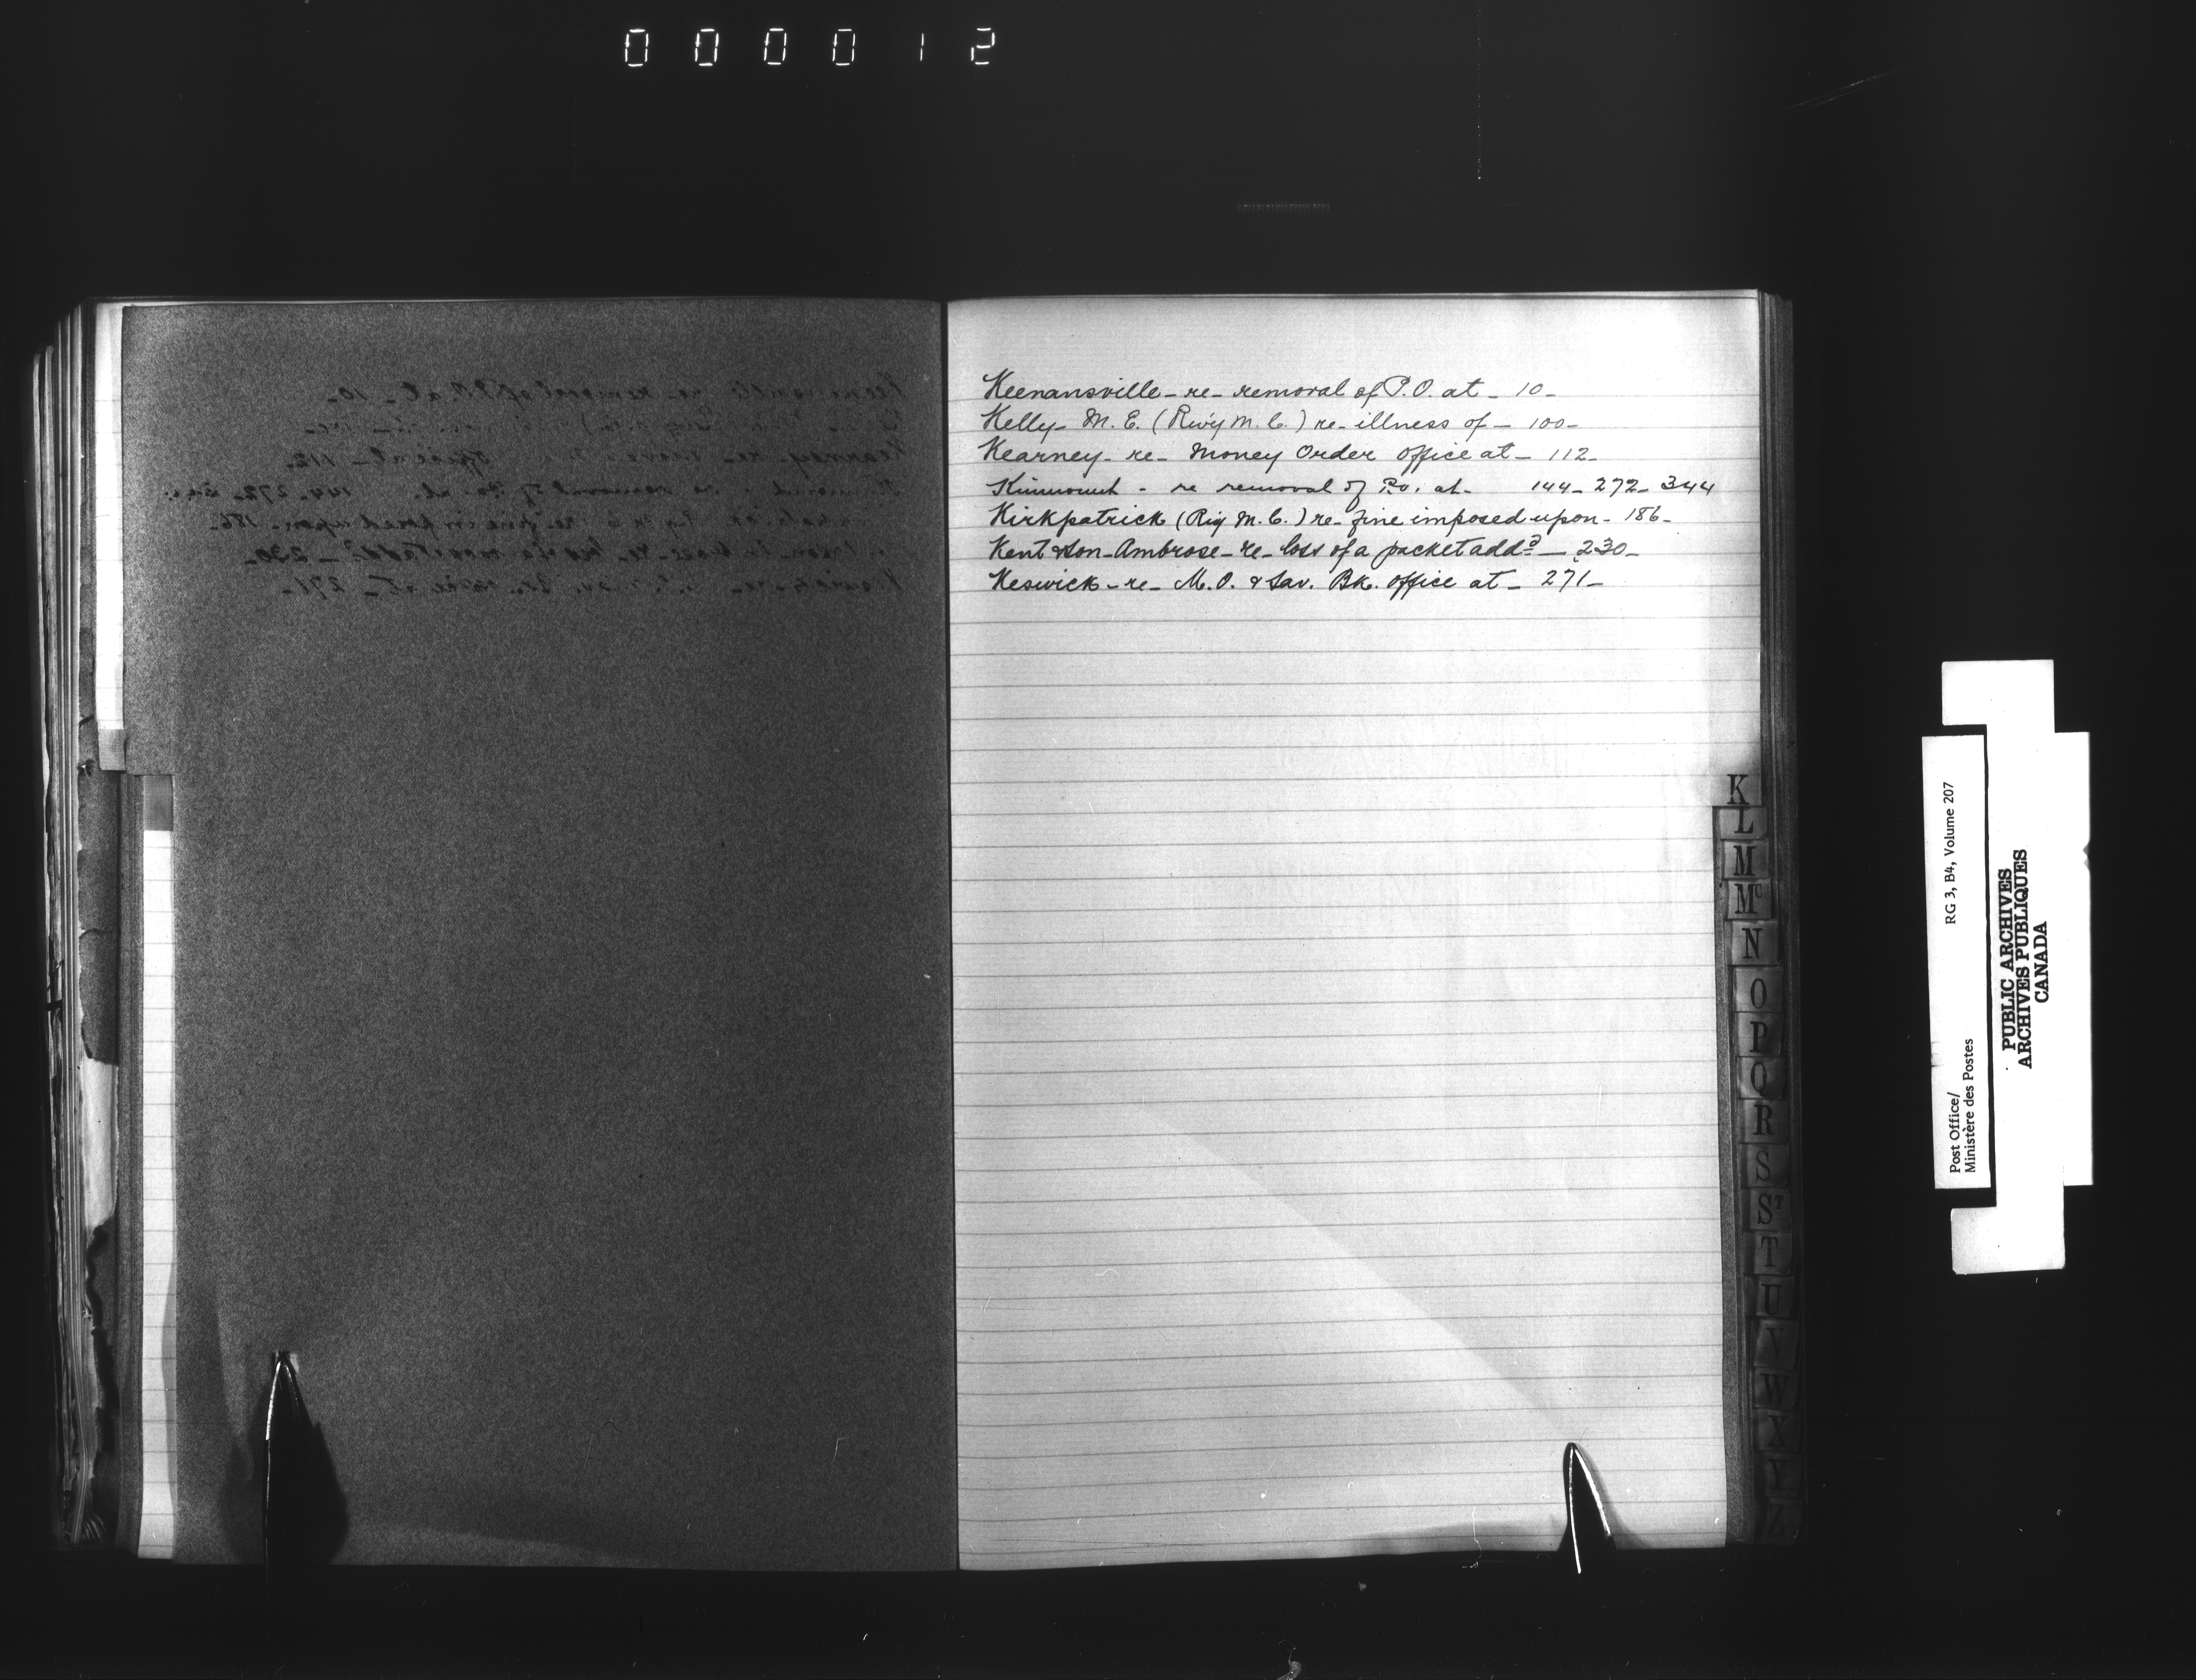 000012
Keenansville - re - removal of P.O. at - 10 -
Kelly - M. E. (R'w'y M. C.) re - illness of - 100 -
Kearney - re - Money Order Office at - 112 -
Kinmount - re removal of P.O. at - 144 - 272 - 344
Kirkpatrick (R'y M. C.) re - fine imposed upon - 186 -
Kent & Son - Ambrose - re - loss of a packet add.d - 230 -
Keswick - re - M.O. & Sav. Bk. Office at - 271 -
K
L
M
Mc
N
O
P
Q
R
S
ST
T
U
V
W
X
Y
Z
Post Office/ RG 3, B4, Volume 207
Ministère des Postes
PUBLIC ARCHIVES
ARCHIVES PUBLIQUES
CANADA